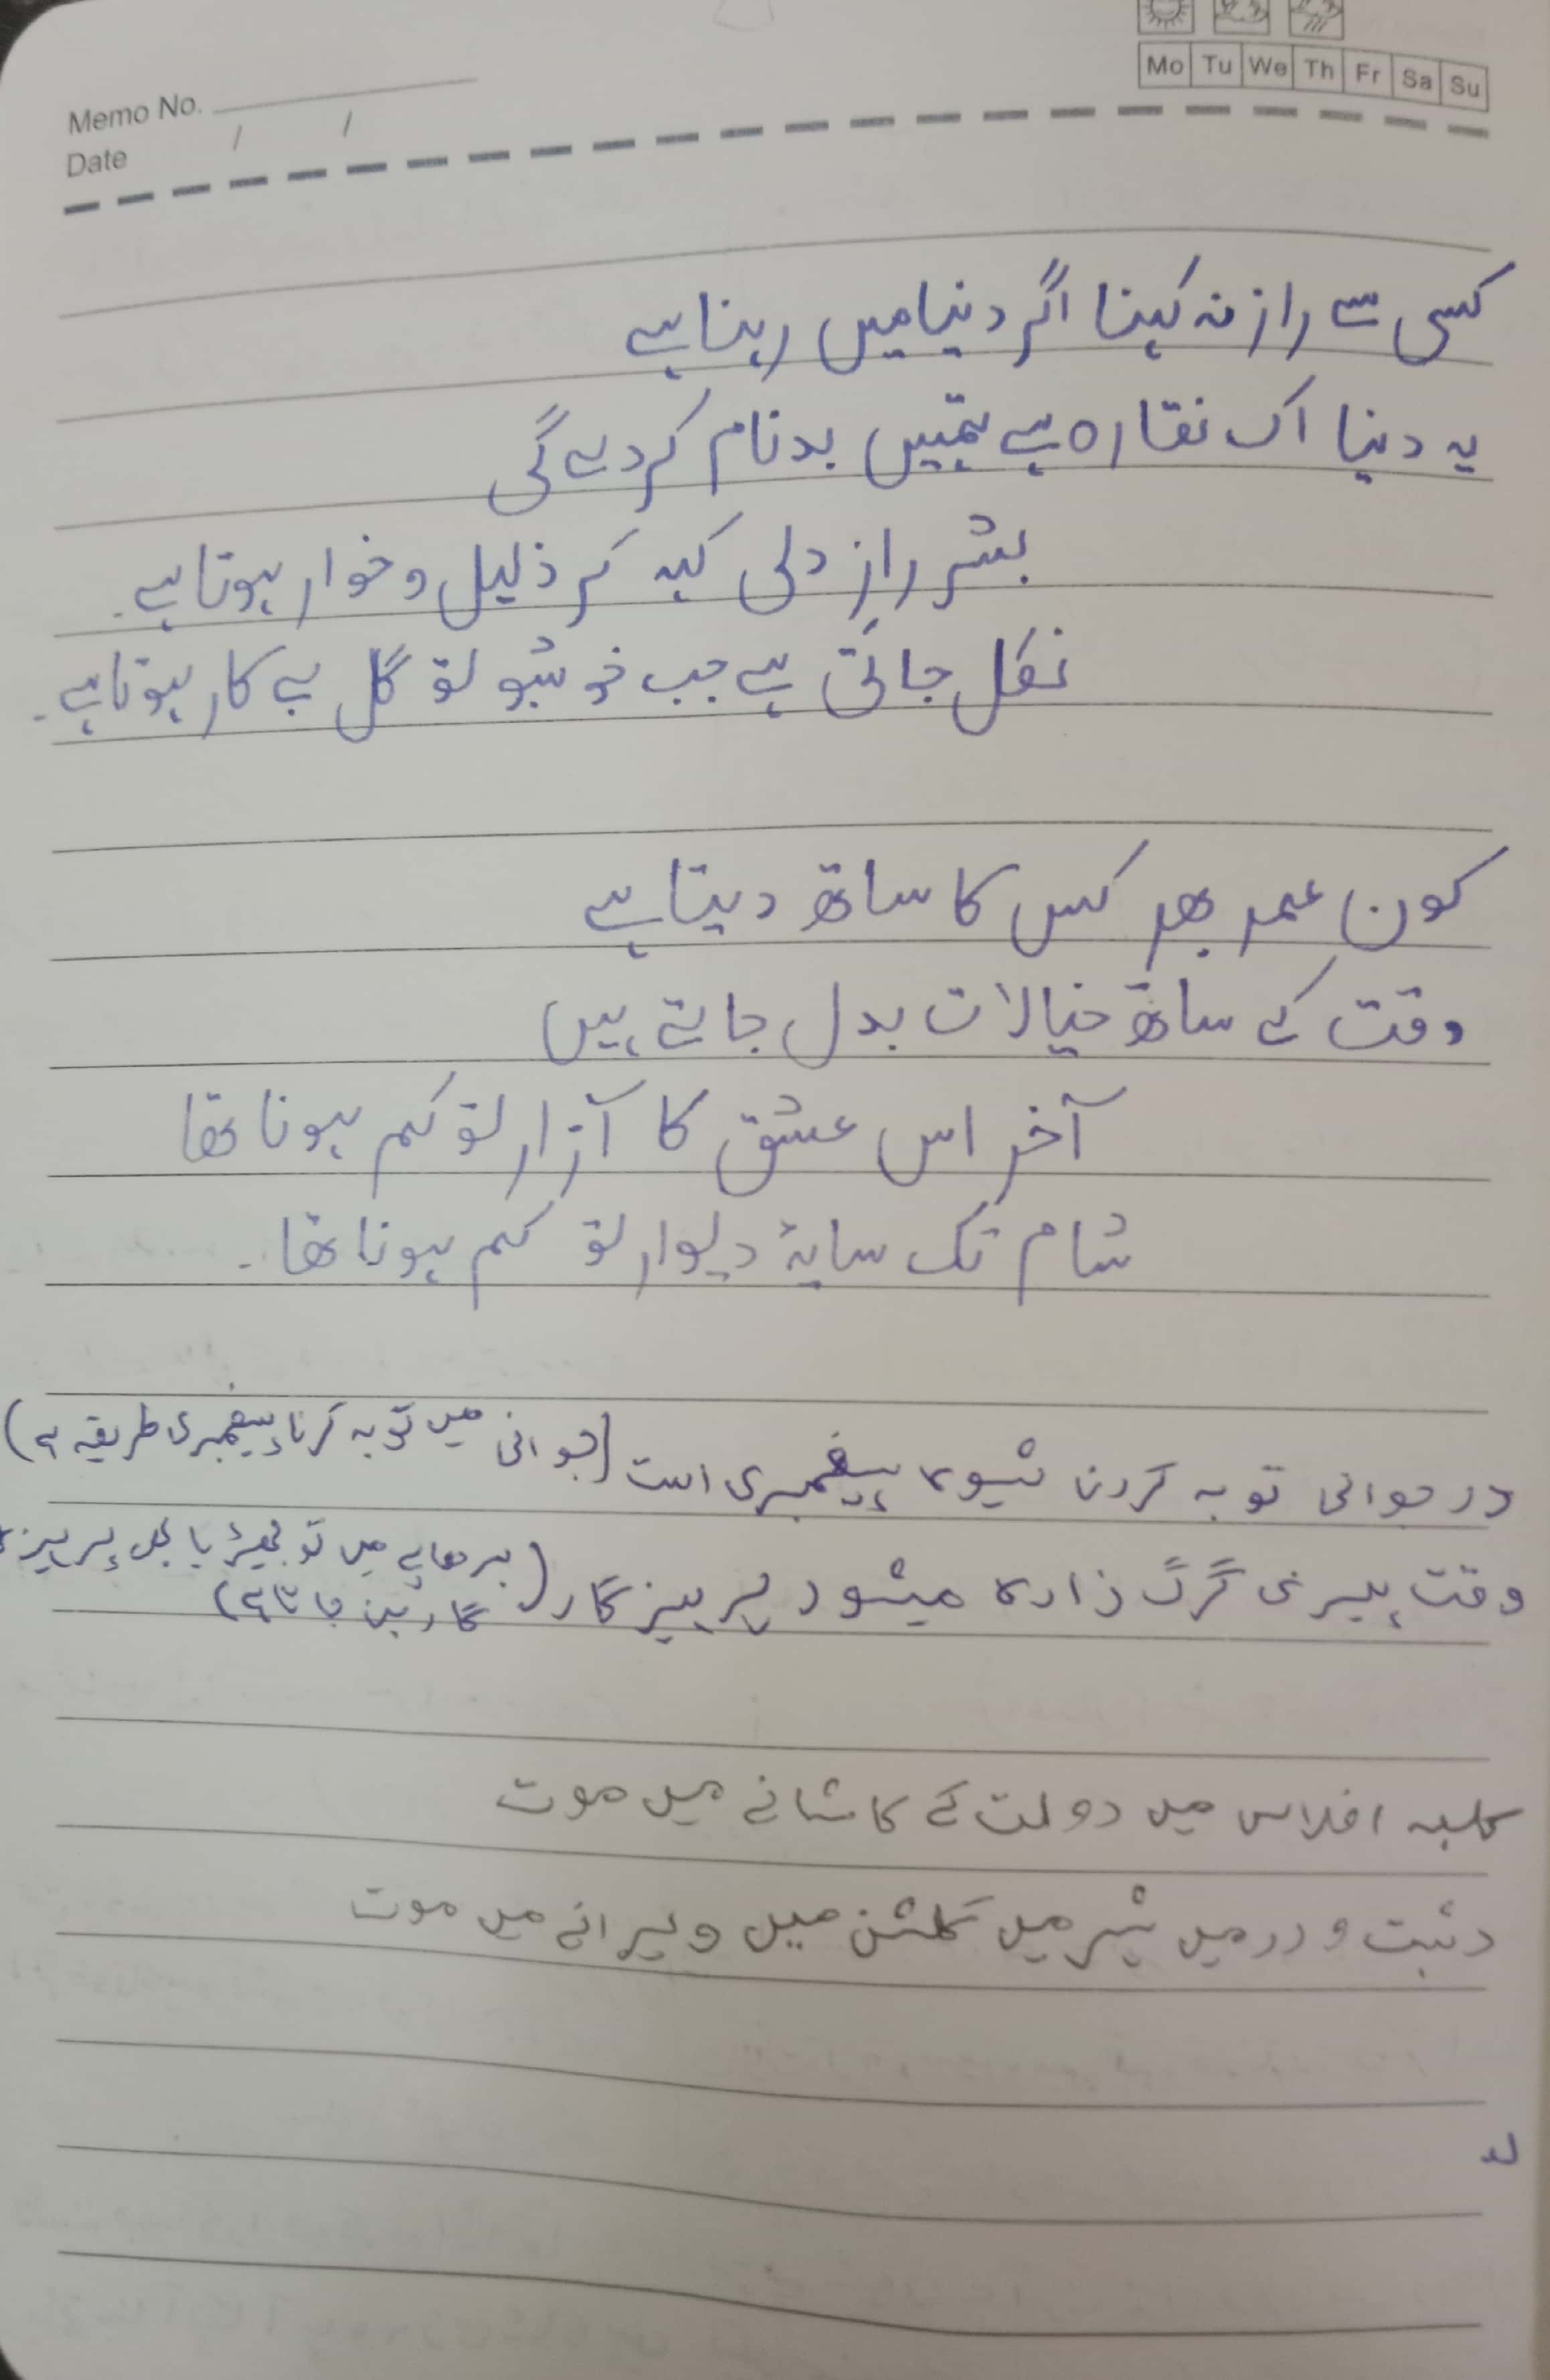 Mo Tu We Th Fr Sa Su
Memo No.
Date / /
کسی سے راز نہ کہنا اگر دنیا میں رہنا ہے
یہ دنیا اک نقارہ ہے تمہیں بدنام کر دے گی
بشر رازِ دلی کہہ کر ذلیل و خوار ہوتا ہے۔
نکل جاتی ہے جب خوشبو تو گل بے کار ہوتا ہے۔
کون عمر بھر کس کا ساتھ دیتا ہے
وقت کے ساتھ خیالات بدل جاتے ہیں
آخر اس عشق کا آزار تو کم ہونا تھا
شام تک سایۂ دیوار تو کم ہونا تھا۔
در جوانی توبہ کردن شیوہ پیغمبری است (جوانی میں توبہ کرنا پیغمبری طریقہ ہے)
وقت پیری گرگ زادہ میشود پرہیز گار (بڑھاپے میں تو بھیڑیا بھی پرہیز
گار بن جاتا ہے)
کلبہ افلاس میں دولت کے کاشانے میں موت
دشت و در میں شہر میں گلشن میں ویرانے میں موت